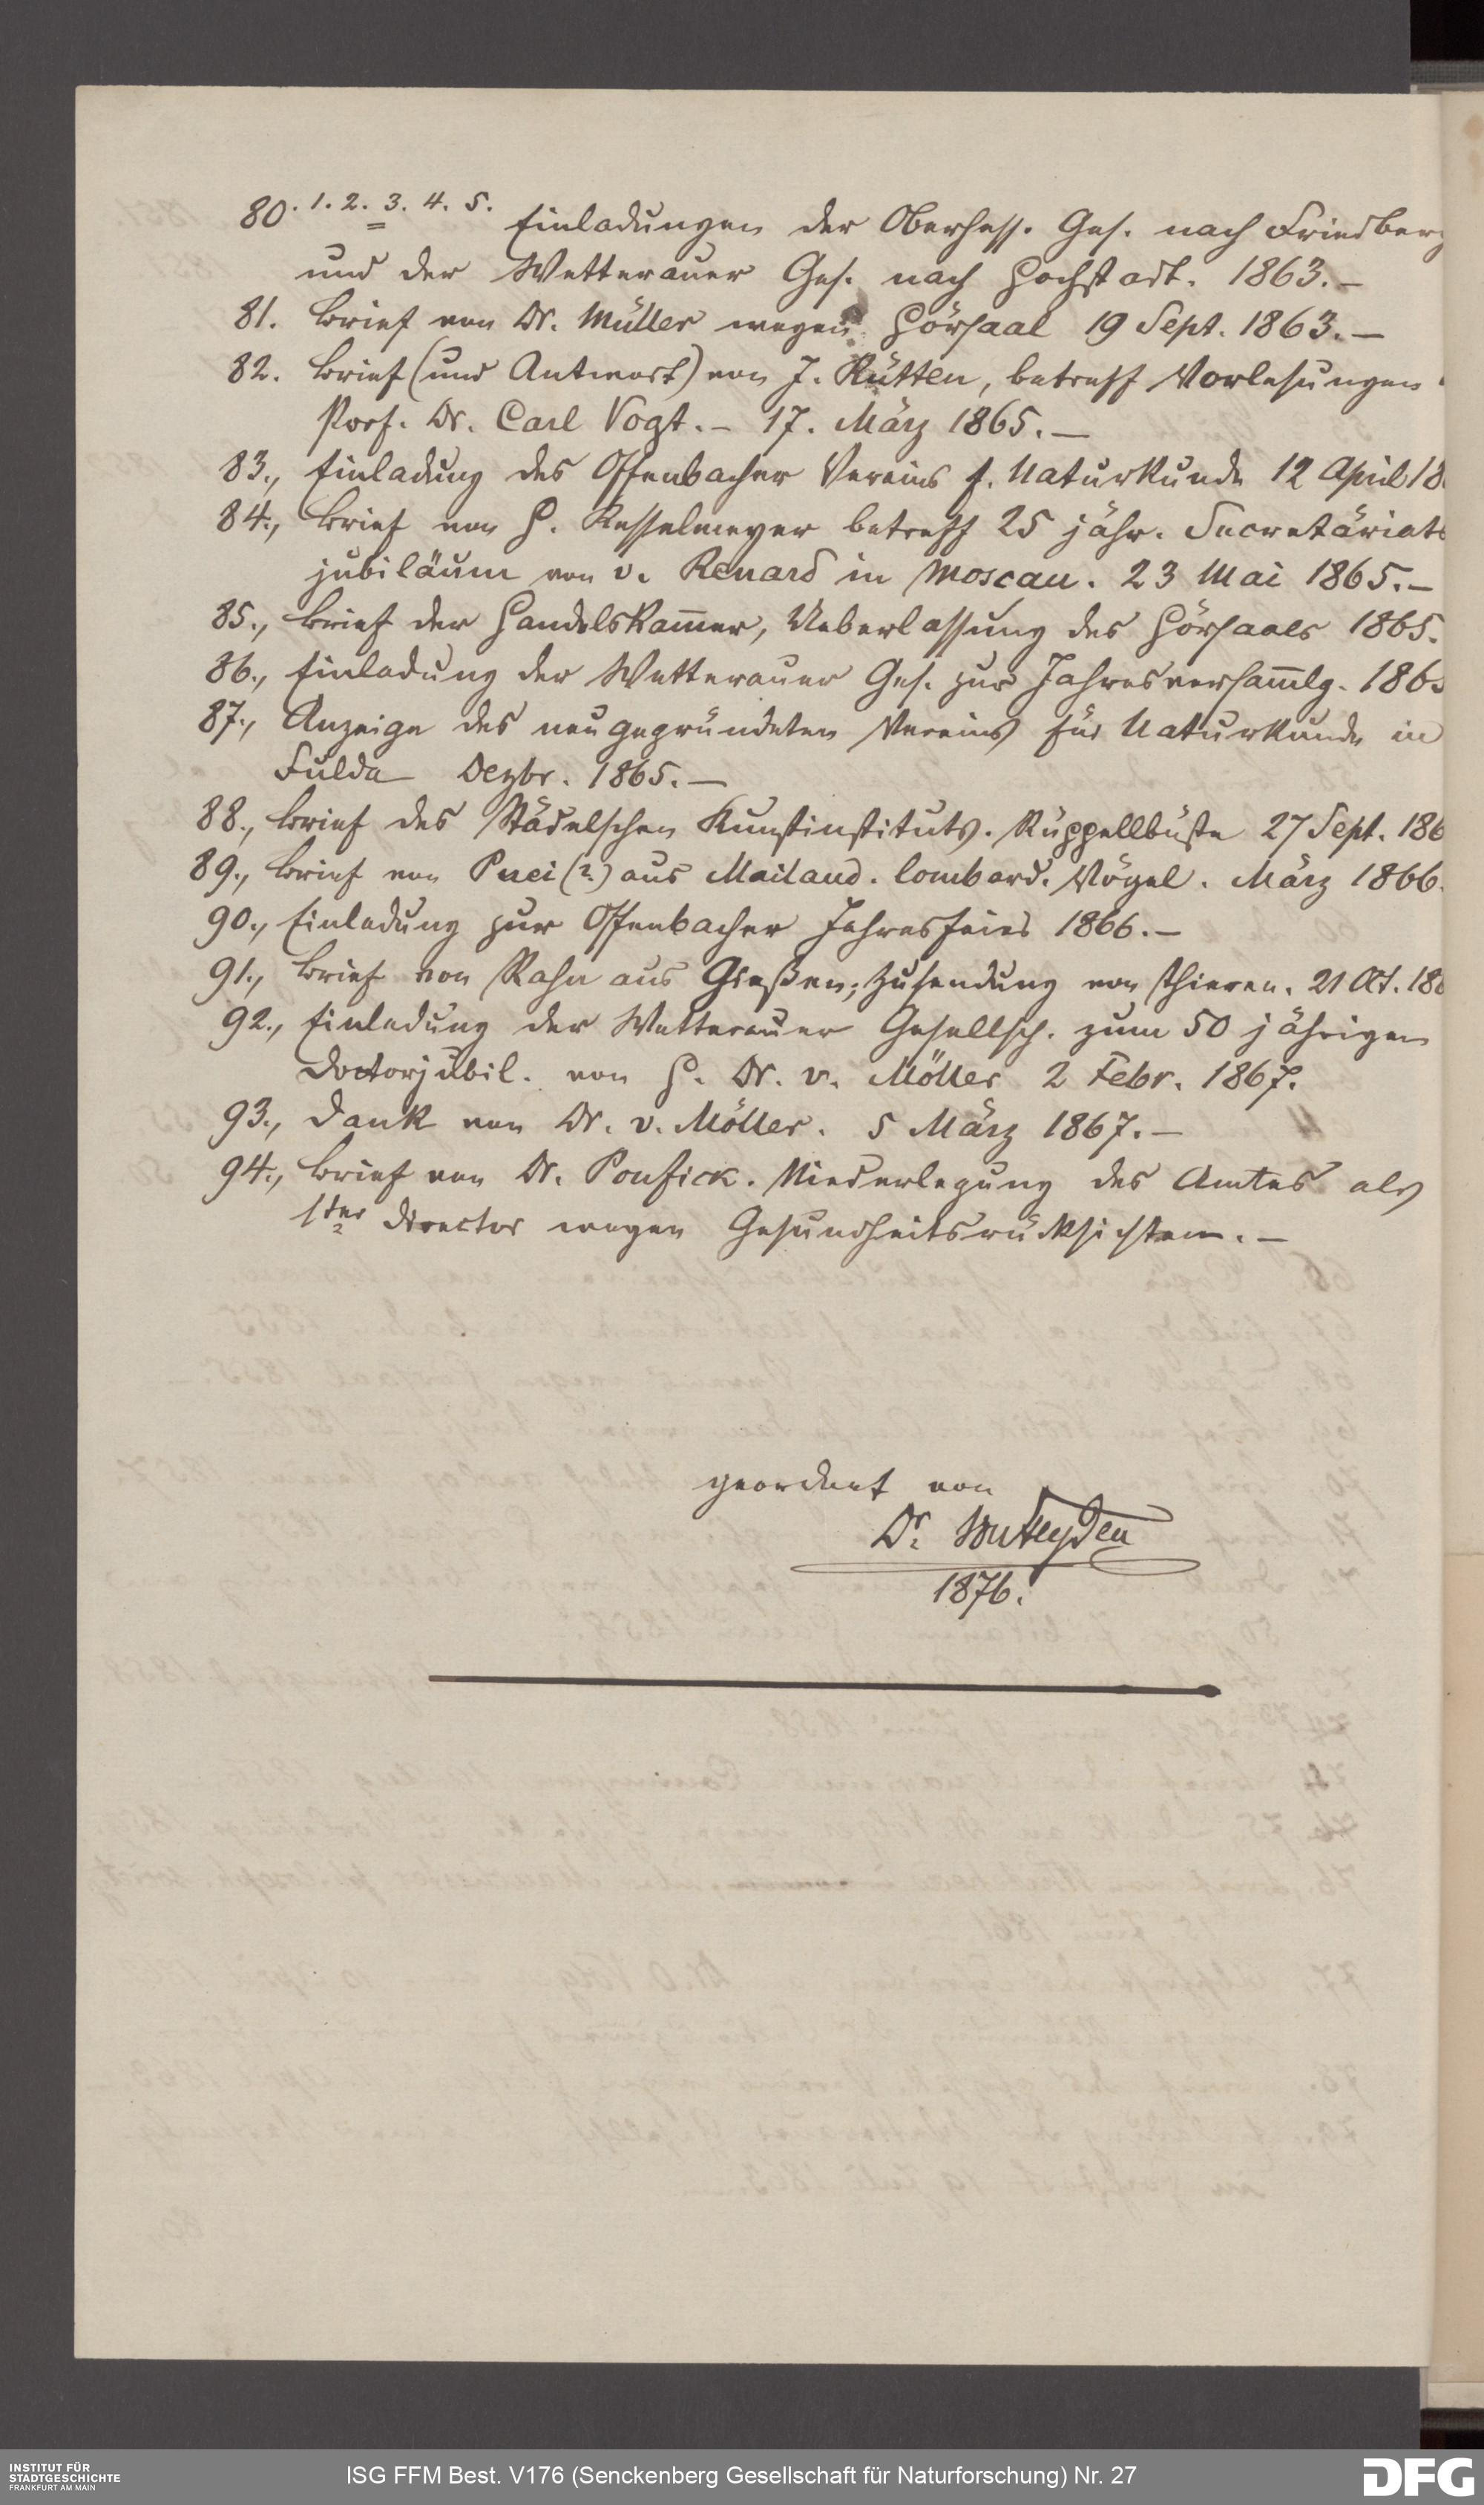 80. 1. 2. 3. 4. 5. Einladungen der Oberhess. Ges. nach Friedberg
und der Wetterauer Ges. nach Hochstadt. 1863.–
81. Brief von Dr. Müller wegen Hörsaal 19 Sept. 1863.–
82. Brief (und Antwort) von J. Rütten, betreff Vorlesungen
Prof. Dr. Carl Vogt.– 17. März 1865.–
83., Einladung des Offenbacher Vereins f. Naturkunde 12 April 18
84., Brief von H. Kesselmeyer betreff 25 jähr. Secretäriats
jubiläum von v. Renard in Moscau. 23 Mai 1865.–
85., Brief der Handelskam̅er, Ueberlassung des Hörsaals 1865.
86., Einladung der Wetterauer Ges. zur Jahresversam̅lg. 186
87., Anzeige des neugegründeten Vereins für Naturkunde in
Fulda Dezbr. 1865.–
88., Brief des Städelschen Kunstinstituts. Rüppellbüste 27 Sept. 186
89., Brief von Pucci (?) aus Mailand. lombard. Vögel. März 1866.
90., Einladung zur Offenbacher Jahresfeier 1866.–
91., Brief von Rahn aus Gießen; Zusendung von Thieren. 21 Oct. 186
92., Einladung der Wetterauer Gesellsch. zum 50 jährigen
Doctorjubil. von H. Dr. v. Möller 2 Febr. 1867.
93., Dank von Dr. v. Möller. 5 März 1867.–
94., Brief von Dr. Ponfick. Niederlegung des Amtes als
1ter Director wegen Gesundheitsrücksichten.–
geordnet von
Dr. von Heyden
1876.
INSTITUT FÜR
STADTGESCHICHTE
FRANKFURT AM MAIN
ISG FFM Best. V176 (Senckenberg Gesellschaft für Naturforschung) Nr. 27
DFG